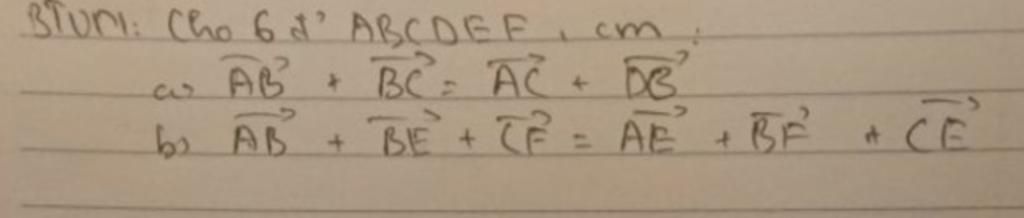 BTVN: Cho 6 đ' ABCDEF, cm:
a) AB + BC = AC + DB
b) AB + BE + CF = AE + BF + CE